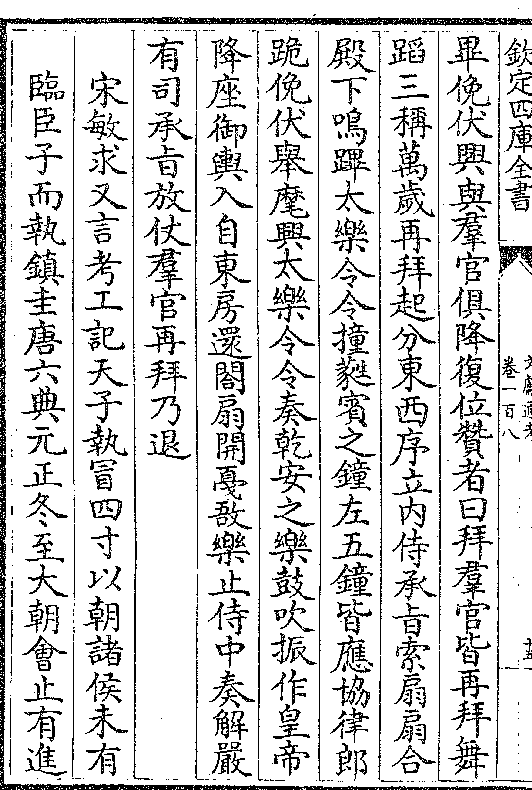 欽定四庫全書
卷一百八
畢俛伏興與羣官俱降復位贊者曰拜羣官皆再拜舞
蹈三稱萬歲再拜起分東西序立内侍承旨索扇扇合
殿下鳴蹕太樂令令撞蕤賓之鐘左五鐘皆應協律郎
跪俛伏舉麾興太樂令令奏乾安之樂鼓吹振作皇帝
降座御輿入自東房還閤扇開戞敔樂止侍中奏解嚴
有司承旨放仗羣官再拜乃退
宋敏求又言考工記天子執冒四寸以朝諸侯未有
臨臣子而執鎮圭唐六典元正冬至大朝會止有進